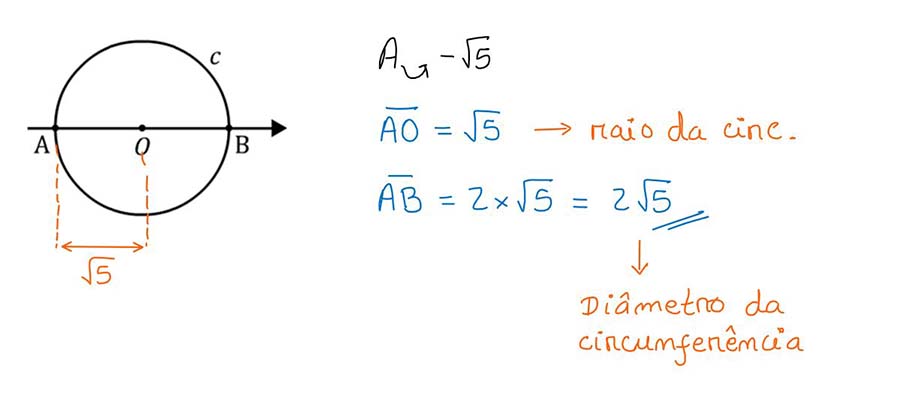 c
A O B
√5
A ↪ -√5
AO = √5 → raio da circ.
AB = 2×√5 = 2√5
Diâmetro da
circunferência